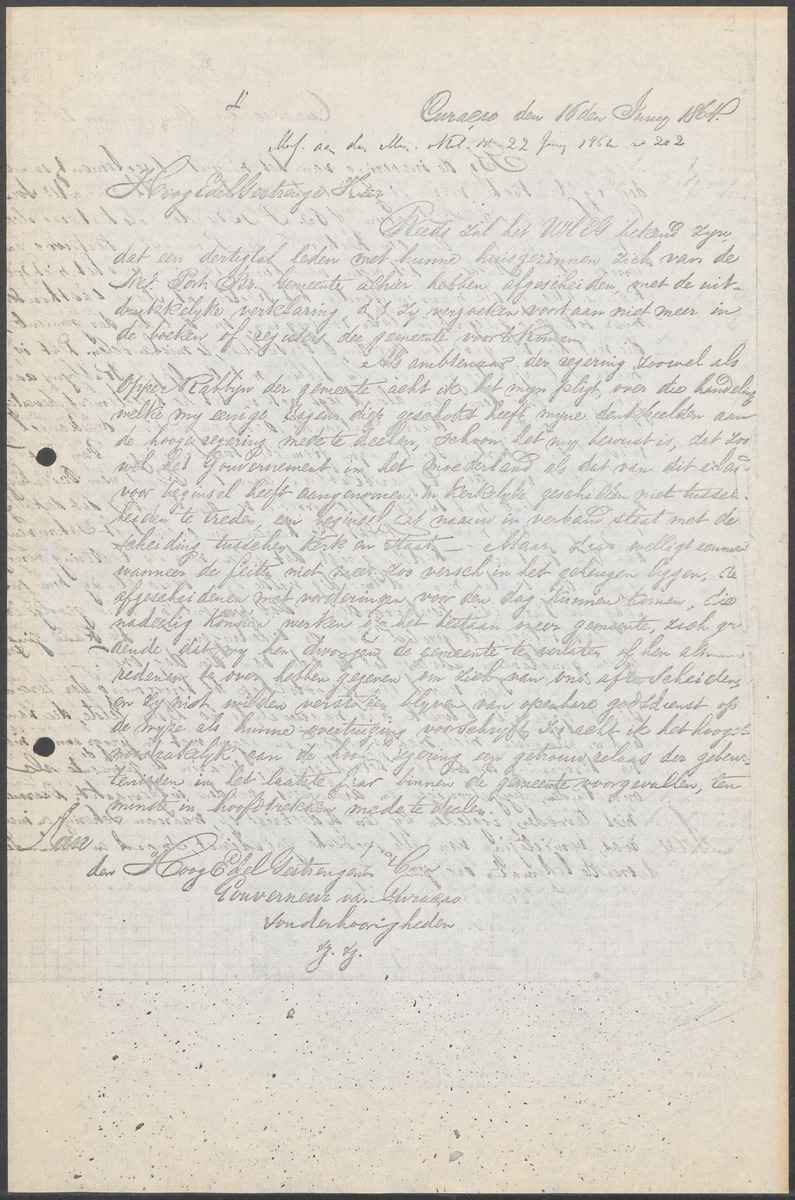 2
Curaçao den 16den Juny 1864.
Mis. aan den Min. Kol. dd 22 Juny 1864 no 202
HoogEdelGestrenge Heer
Reeds zal het UHEG bekend zyn,
dat een dertigtal leden met hunne huisgezinnen zich van de
Ned. Port. Isr. Gemeente alhier hebben afgescheiden, met de uit-
drukkelyke verklaring, dat zy verzoeken voortaan niet meer in
de boeken of registers der gemeente voortekomen
Als ambtenaar der regering zoowel als
Opper Rabbyn der gemeente acht ik het myn pligt, over die handeling
welke my eenige dagen diep geschokt heeft, myne denkbeelden aan
de hooge regering mede te deelen, schoon het my bewust is, dat zoo
wel het Gouvernement in het moederland als dat van dit eiland
voor beginsel heeft aangenomen in Kerkelyke geschillen niet tusschen
beiden te treden, een beginsel dat naauw in verband staat met de
scheiding tusschen Kerk en Staat – Maar daar welligt eenmaal
wanneer de feiten niet meer zoo versch in het geheugen liggen, de
afgescheidenen met vorderingen voor den dag kunnen komen, die
nadeelig konden werken op het bestaan onzer gemeente, zich
dat wy hen dwongen de gemeente te verlaten of hen
redenen te over hebben gegeven om zich van ons afte scheiden,
en zy niet wilden verstoken blyven van openbare godsdienst op
de wyze als hunne overtuiging voorschryft, zo acht ik het hoogst
noodzakelyk aan de hooge regering een getrouw relaas der gebeur-
tenissen in het laatste jaar binnen de gemeente voorgevallen, ten
minste in hoofdtrekken mede te deelen.
Aan
den HoogEdelGestrengen Heer
Gouverneur van Curaçao
onderhoorigheden